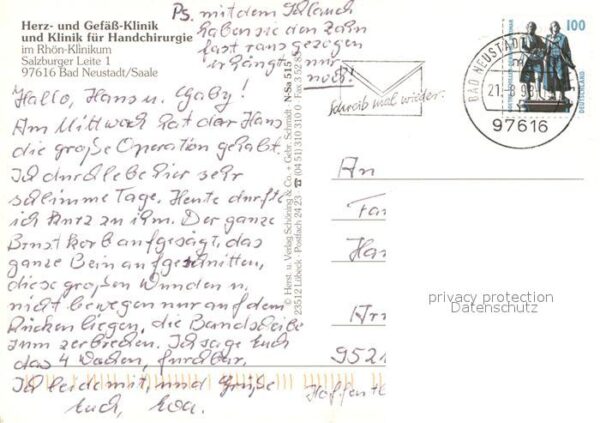 Herz- und Gefäß-Klinik
und Klinik für Handchirurgie
im Rhön-Klinikum
Salzburger Leite 1
97616 Bad Neustadt/Saale
Ps. mit dem Schlauch
haben sie den Zahn
fast rausgezogen
er hängt nur
noch!
Hallo, Hans u. Gaby!
Am Mittwoch hat der Hans
die große Operation gehabt.
Ich durchlebe hier sehr
schlimme Tage. Heute durfte
ich kurz zu ihm. Der ganze
Brustkorb aufgesägt, das
ganze Bein aufgeschnitten,
diese großen Wunden u.
nicht bewegen nur auf dem
Rücken liegen, die Bandscheibe
zum zerbrechen. Ich sage Euch
das 4 Wochen, furchtbar.
Ich leide mit, Grüße
Euch,
© Herst. u. Verlag Schöning & Co. + Gebr. Schmidt N-Sa 515
23512 Lübeck · Postfach 24 23 ☎ (04 51) 310 310 Fax
Schreib mal wieder.
BAD NEUSTADT
21.-8.98
97616
100
DEUTSCHLAND
An
Fa
Ha
9521
privacy protection
Datenschutz